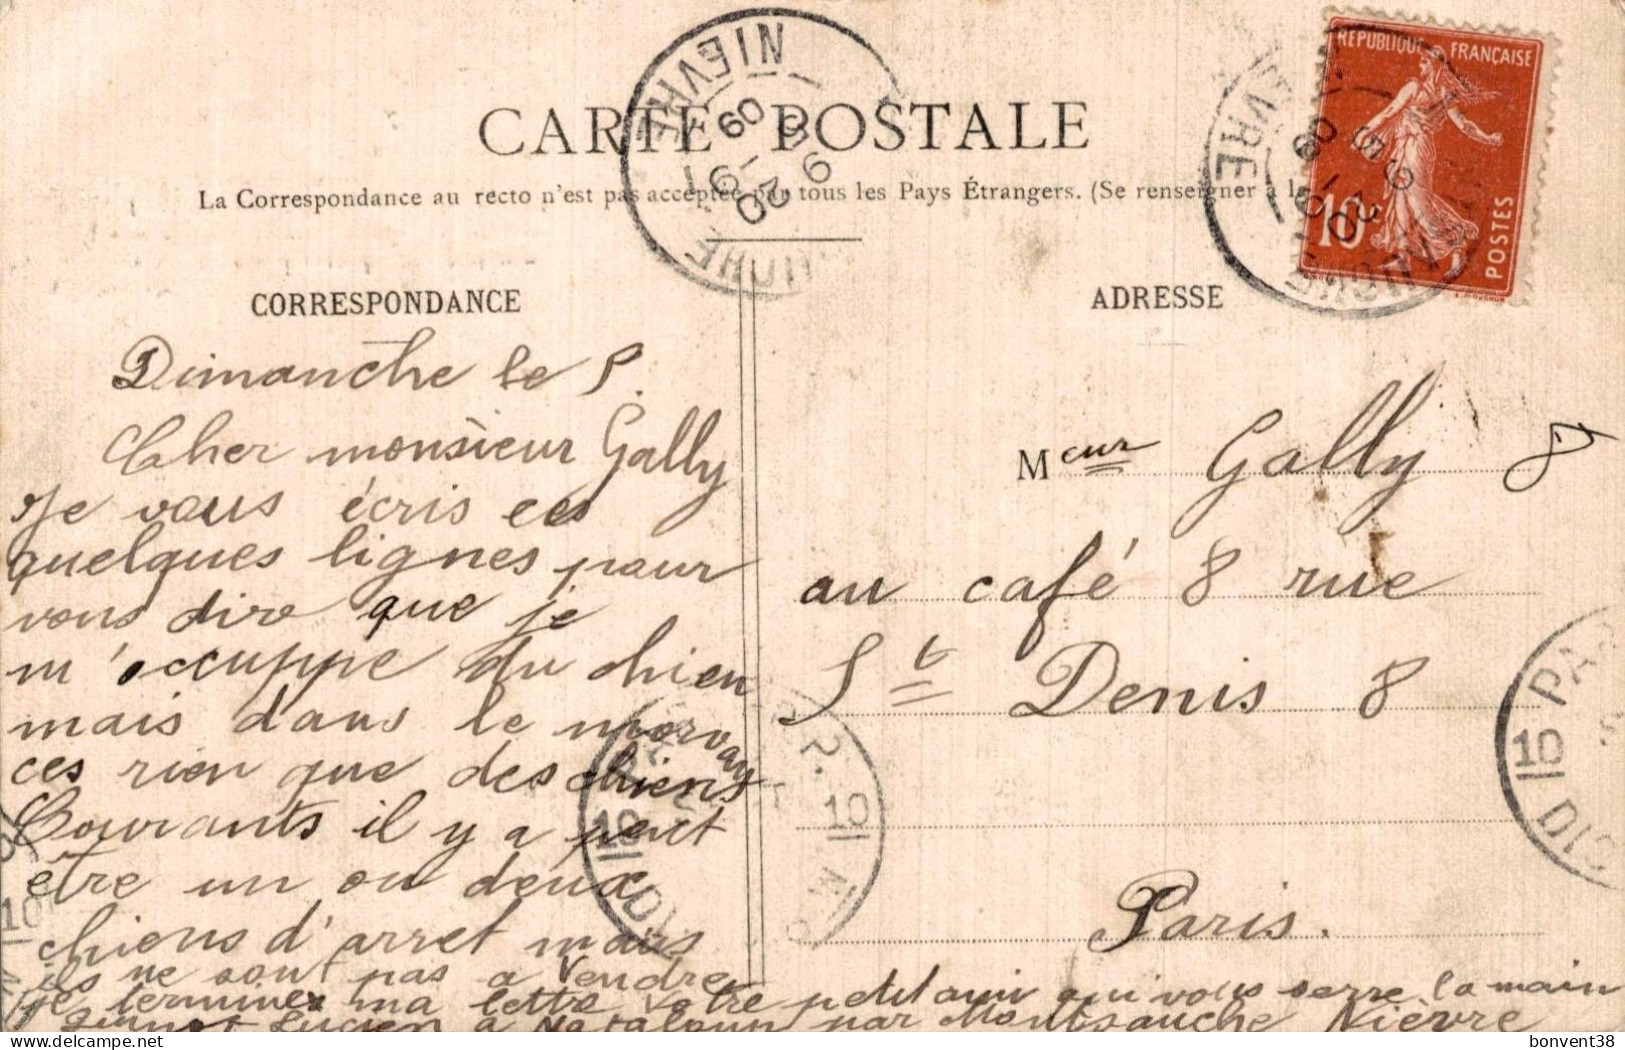 RÉPUBLIQUE FRANÇAISE
10c
POSTES
NIÈVRE
CARTE POSTALE
La Correspondance au recto n'est pas acceptée par tous les Pays Étrangers. (Se renseigner à la
CORRESPONDANCE
Dimanche le 5.
Cher monsieur Gally
Je vous écris ces
quelques lignes pour
vous dire que je
m'occuppe du chien
mais dans le morvans
ces rien que des chiens
Courants il y a peut
être un ou deux
chiens d'arret mais
ils ne sont pas a Vendre
je termine ma lettre votre petit ami qui vous serre la main
Lucien a par Montsauche Nièvre
ADRESSE
Meur Gally 8
au café 8 rue
St Denis 8
Paris.
bonvent38